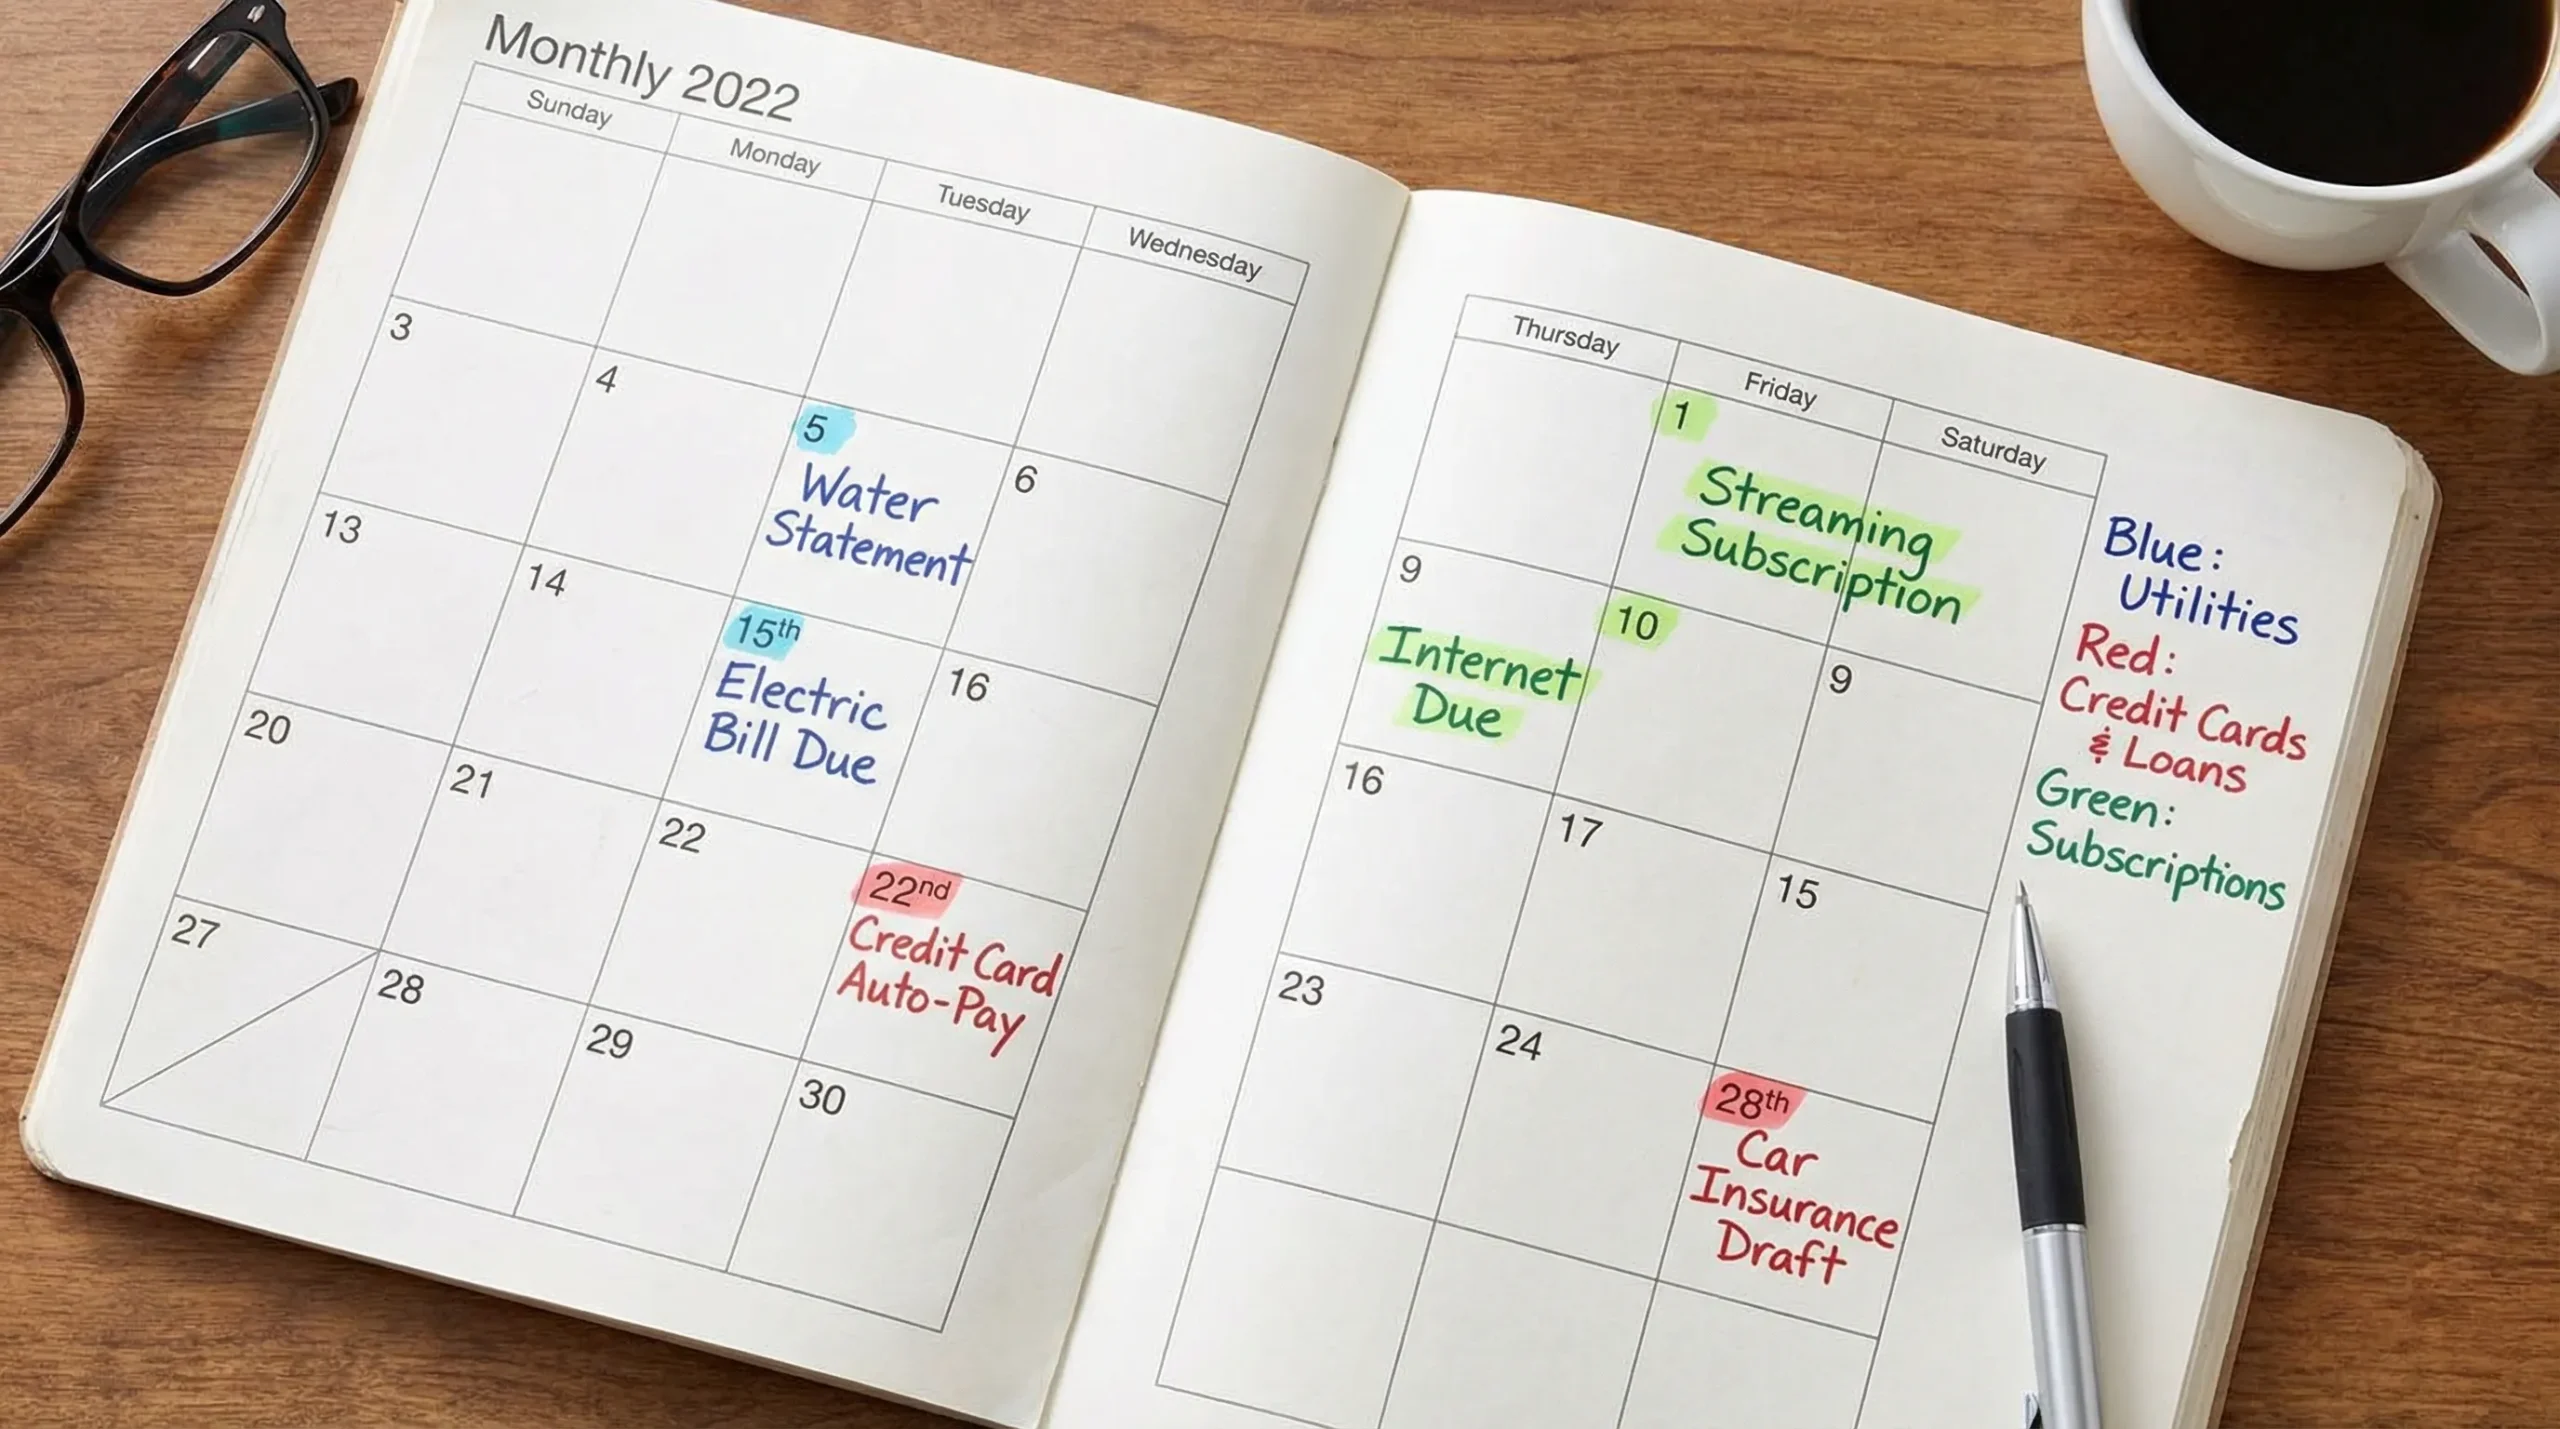 Monthly 2022
Sunday
Monday
Tuesday
Wednesday
3
4
5
Water
Statement
6
13
14
15th
Electric
Bill Due
16
20
21
22
22nd
Credit Card
Auto-Pay
27
28
29
30
Thursday
Friday
Saturday
1
Streaming
Subscription
9
Internet
Due
10
9
16
17
15
23
24
28th
Car
Insurance
Draft
Blue:
Utilities
Red:
Credit Cards
& Loans
Green:
Subscriptions